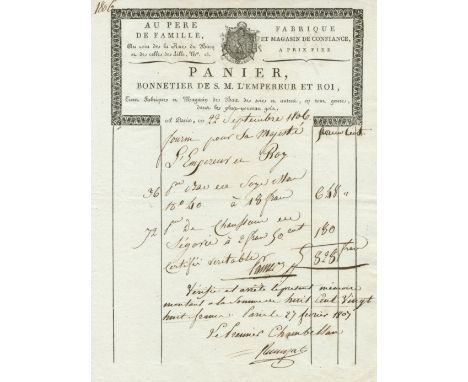 1806
AU PERE
DE FAMILLE,
Au coin de la Rue du Bacq
et de celles de Lille, No.
FABRIQUE
ET MAGASIN DE CONFIANCE,
A PRIX FIXE
PANIER,
BONNETIER DE S. M. L'EMPEREUR ET ROI,
Tient Fabriques et Magasin de Bas de soies et autres, en tout genre,
dans les plus nouveau goût.
A Paris, ce 22 Septembre 1806
fourni pour Sa Majesté
L'Empereur et Roy
36 p. Bas de Soye blan
No 40 à 18 fran 648 "
72 p. de Chaussons en
Ségovie à 2 fran 50 cent 180
Certifié véritable 828 fran
Panier
Vérifié et arrêté le présent mémoire
montant à la Somme de huit Cent Vingt
huit francs Paris le 27 février 1807
Le Premier Chambellan